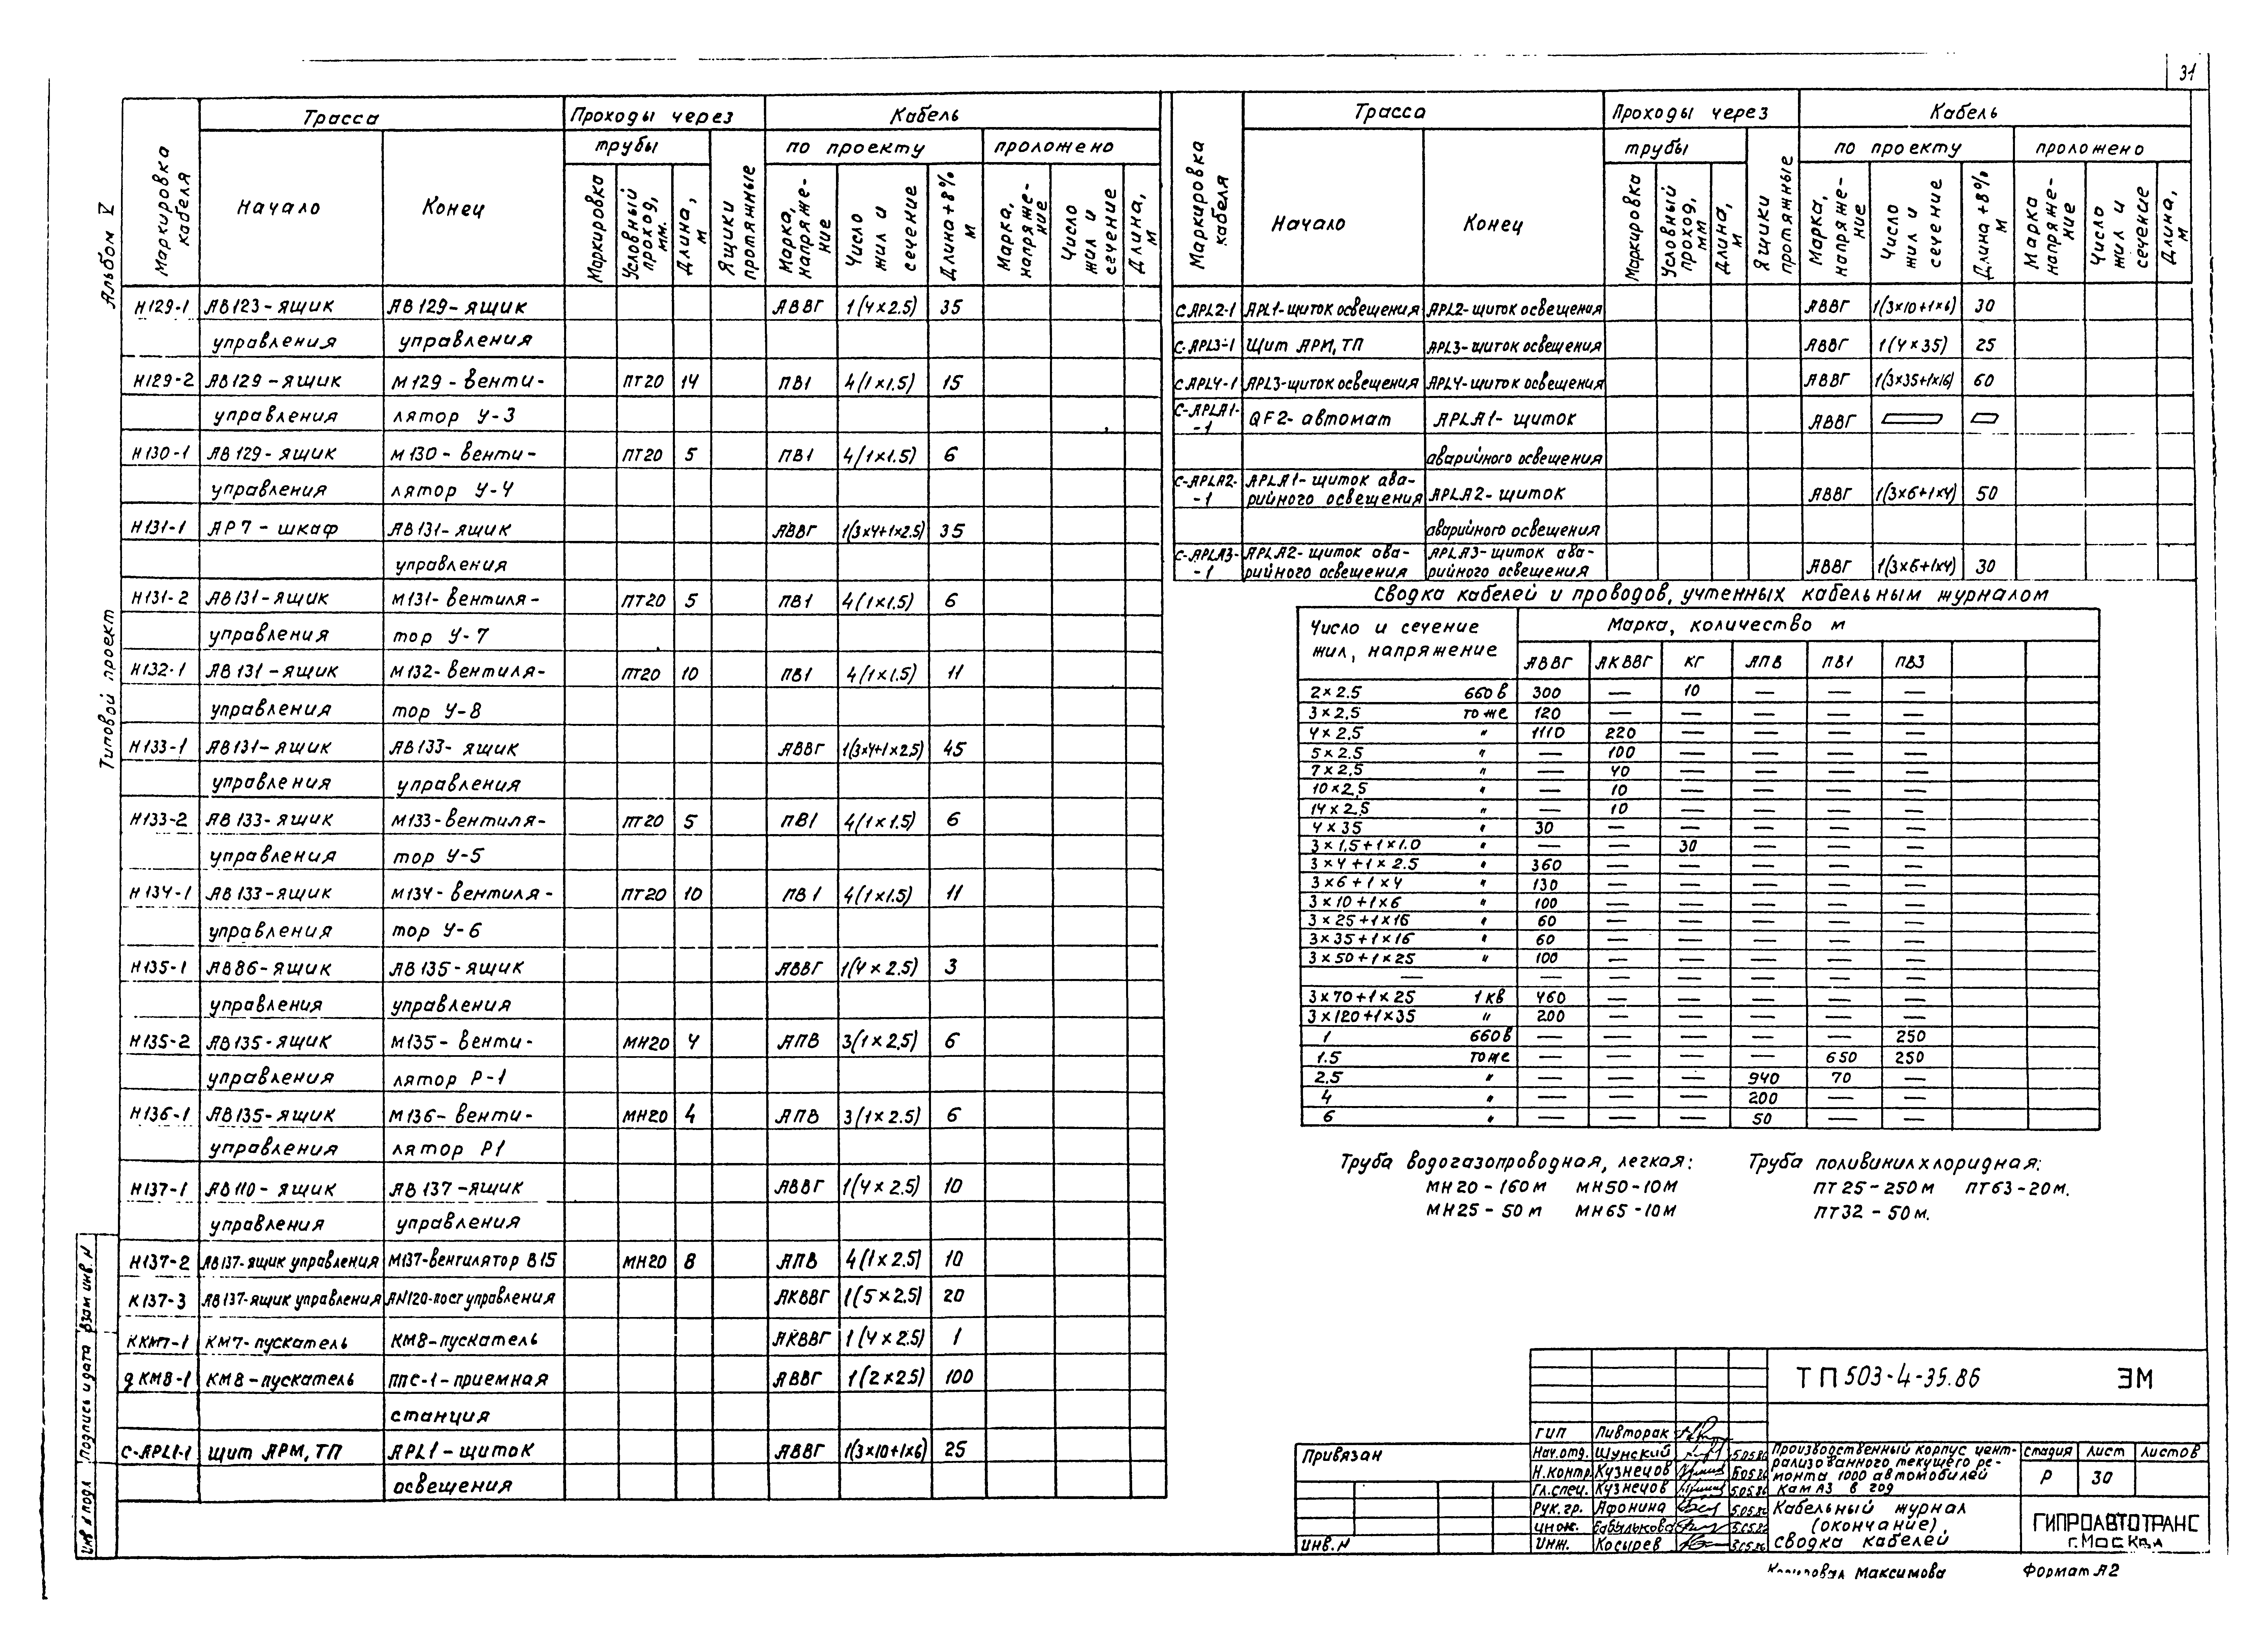 31
Альбом V
Типовой проект
Маркировка кабеля
Трасса
Проходы через
Кабель
трубы
Ящики протяжные
по проекту
проложено
Начало
Конец
Маркировка
Условный проход, мм.
Длина, м
Марка, напряже-ние
Число жил и сечение
Длина +8% м
Марка, напряже-ние
Число жил и сечение
Длина, м
Н129-1 АВ123-ящик АВ129-ящик АВВГ 1(4×2.5) 35
управления управления
Н129-2 АВ129-ящик М129-венти- ПТ20 14 ПВ1 4(1×1.5) 15
управления лятор У-3
Н130-1 АВ129-ящик М130-венти- ПТ20 5 ПВ1 4(1×1.5) 6
управления лятор У-4
Н131-1 АР7-шкаф АВ131-ящик АВВГ 1(3×4+1×2.5) 35
управления
Н131-2 АВ131-ящик М131-вентиля- ПТ20 5 ПВ1 4(1×1.5) 6
управления тор У-7
Н132-1 АВ131-ящик М132-вентиля- ПТ20 10 ПВ1 4(1×1.5) 11
управления тор У-8
Н133-1 АВ131-ящик АВ133-ящик АВВГ 1(3×4+1×2.5) 45
управления управления
Н133-2 АВ133-ящик М133-вентиля- ПТ20 5 ПВ1 4(1×1.5) 6
управления тор У-5
Н134-1 АВ133-ящик М134-вентиля- ПТ20 10 ПВ1 4(1×1.5) 11
управления тор У-6
Н135-1 АВ86-ящик АВ135-ящик АВВГ 1(4×2.5) 3
управления управления
Н135-2 АВ135-ящик М135-венти- МН20 4 АПВ 3(1×2.5) 6
управления лятор Р-1
Н136-1 АВ135-ящик М136-венти- МН20 4 АПВ 3(1×2.5) 6
управления лятор Р1
Н137-1 АВ110-ящик АВ137-ящик АВВГ 1(4×2.5) 10
управления управления
Н137-2 АВ137-ящик управления М137-вентилятор В15 МН20 8 АПВ 4(1×2.5) 10
К137-3 АВ137-ящик управления AN120-пост управления АКВВГ 1(5×2.5) 20
ККМ7-1 КМ7-пускатель КМ8-пускатель АКВВГ 1(4×2.5) 1
дКМ8-1 КМ8-пускатель ППС-1-приемная АВВГ 1(2×25) 100
станция
С-APL1-1 Щит АРМ,ТП APL1-щиток АВВГ 1(3×10+1×6) 25
освещения
Маркировка кабеля
Трасса
Проходы через
Кабель
трубы
Ящики протяжные
по проекту
проложено
Начало
Конец
Маркировка
Условный проход, мм
Длина, м
Марка, напряже-ние
Число жил и сечение
Длина +8% м
Марка напряже-ние
Число жил и сечение
Длина, м
С APL2-1 APL1-щиток освещения APL2-щиток освещения АВВГ 1(3×10+1×6) 30
С-APL3-1 Щит АРМ, ТП APL3-щиток освещения АВВГ 1(4×35) 25
С APL4-1 APL3-щиток освещения APL4-щиток освещения АВВГ 1(3×35+1×16) 60
С-APLA1- QF2-автомат APLA1-щиток АВВГ
-1
аварийного освещения
С-APLA2- APLA1-щиток ава-
-1 рийного освещения APLA2-щиток АВВГ 1(3×6+1×4) 50
аварийного освещения
С-APLA3- APLA2-щиток ава- APLA3-щиток ава-
-1 рийного освещения рийного освещения АВВГ 1(3×6+1×4) 30
Сводка кабелей и проводов, учтенных кабельным журналом
Число и сечение жил, напряжение
Марка, количество м
АВВГ АКВВГ КГ АПВ ПВ1 ПВ3
2×2.5 660в 300 — 10 — — —
3×2,5 то же 120 — — — — —
4×2.5 " 1110 220 — — — —
5×2.5 " — 100 — — — —
7×2.5 " — 40 — — — —
10×2,5 " — 10 — — — —
14×2,5 " — 10 — — — —
4×35 " 30 — — — — —
3×1,5+1×1.0 " — — 30 — — —
3×4+1×2.5 " 360 — — — — —
3×6+1×4 " 130 — — — — —
3×10+1×6 " 100 — — — — —
3×25+1×16 " 60 — — — — —
3×35+1×16 " 60 — — — — —
3×50+1×25 " 100 — — — — —
— — — — — — —
3×70+1×25 1кв 460 — — — — —
3×120+1×35 " 200 — — — — —
1 660в — — — — — 250
1.5 тоже — — — — 650 250
2,5 " — — — 940 70 —
4 " — — — 200 — —
6 " — — — 50 — —
Труба водогазопроводная, легкая:
МН20-160м МН50-10м
МН25-50м МН65-10м
Труба поливинилхлоридная:
ПТ25-250м ПТ63-20м.
ПТ32-50м.
ТП 503-4-35.86 ЭМ
Привязан
ИНВ.N
ГИП Пивторак
Нач.отд. Щунский 5.05.86
Н.контр. Кузнецов 5.05.86
Гл.спец. Кузнецов 5.05.86
Рук.гр. Афонина 5.05.86
Инж. Бабылькова 5.05.86
Инж. Косырев 5.05.86
Производственный корпус цент-
рализованного текущего ре-
монта 1000 автомобилей
КамАЗ в год
стадия лист листов
Р 30
Кабельный журнал
(окончание),
сводка кабелей
ГИПРОАВТОТРАНС
г.Москва
Копировал Максимова
Формат А2
Инв N подл Подпись и дата Взам инв. N